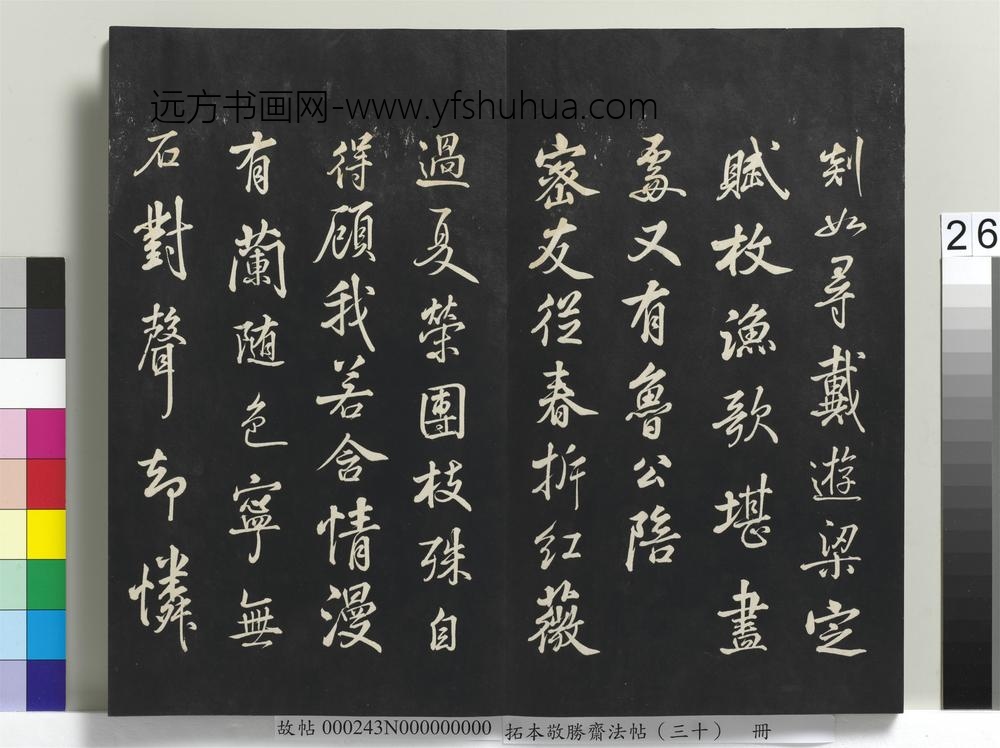 远方书画网-www.yfshuhua.com
剡如尋戴遊梁定
賦枚漁歌堪畫
處又有魯公陪
密友從春拆紅薇
過夏榮團枝殊自
得顧我若含情漫
有蘭隨色寧無
石對聲却憐
26
故帖 000243N000000000 拓本敬勝齋法帖（三十） 冊